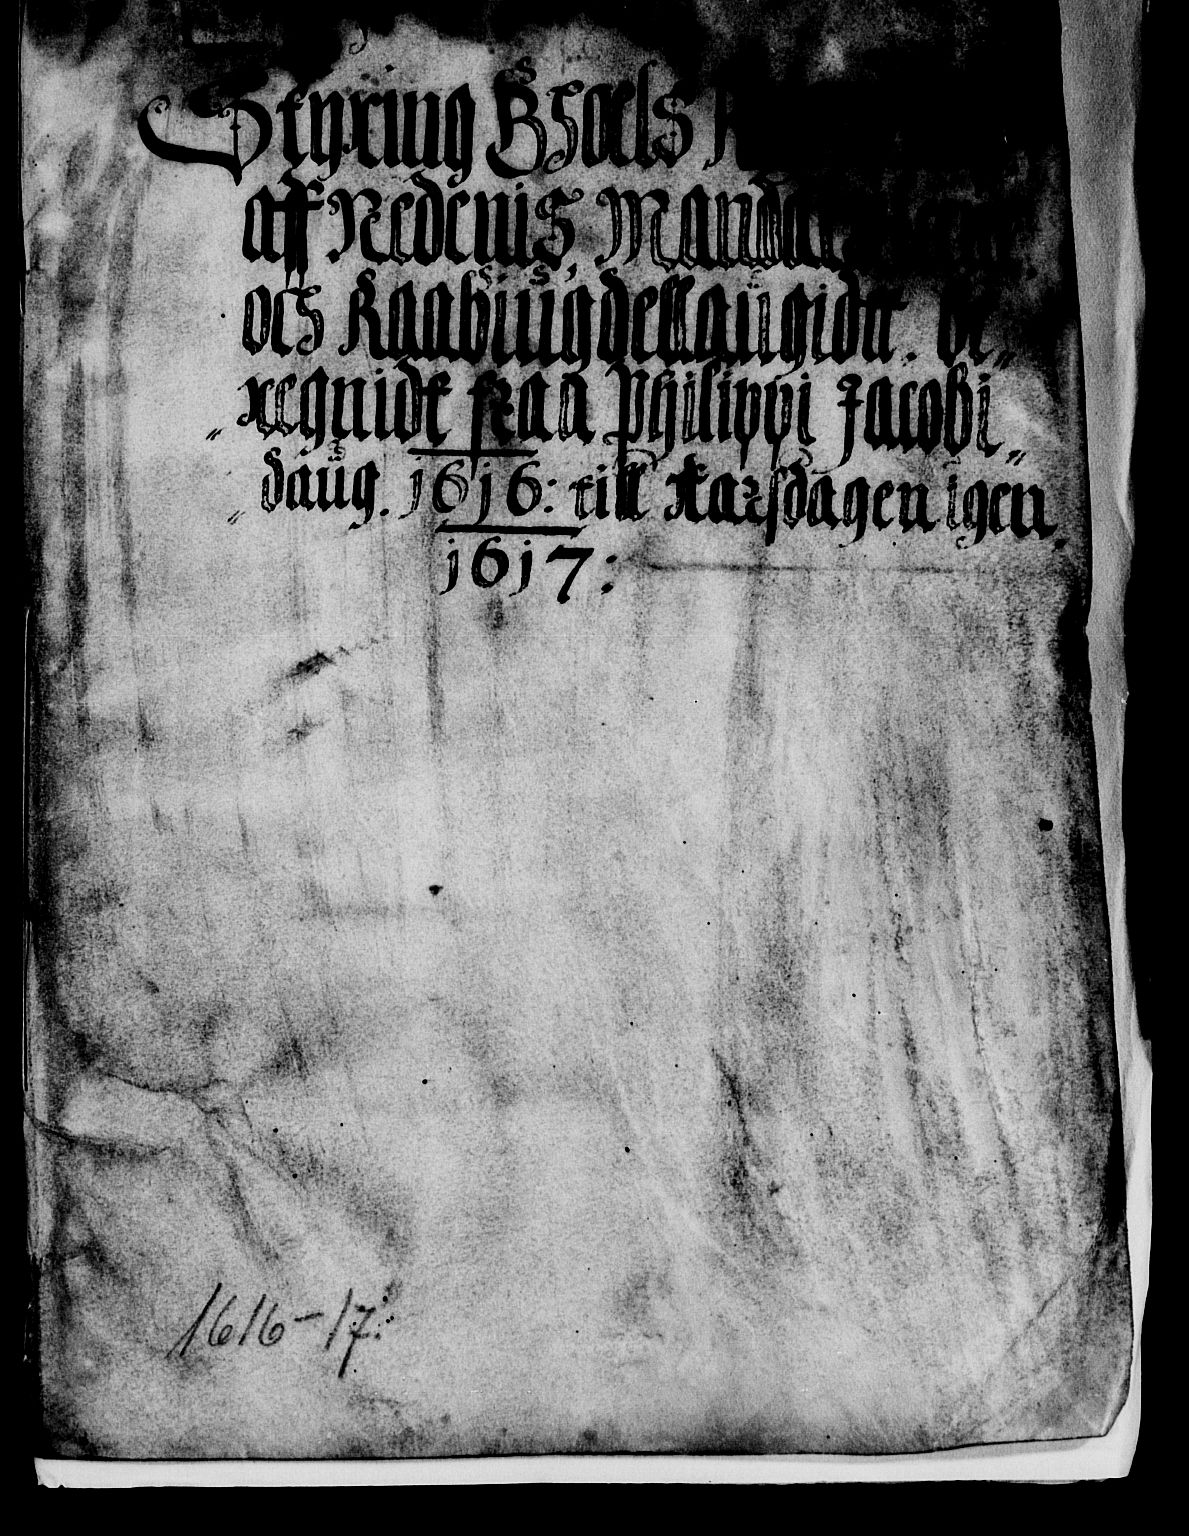 Styring Boels
aff Nedenis, Mandals
och Raabiugdellaugidtt. be„
„regnidt fraa Philippi Jacobi„
„daug. 1616: till Aarsdagen igen.
1617:
1616-17.